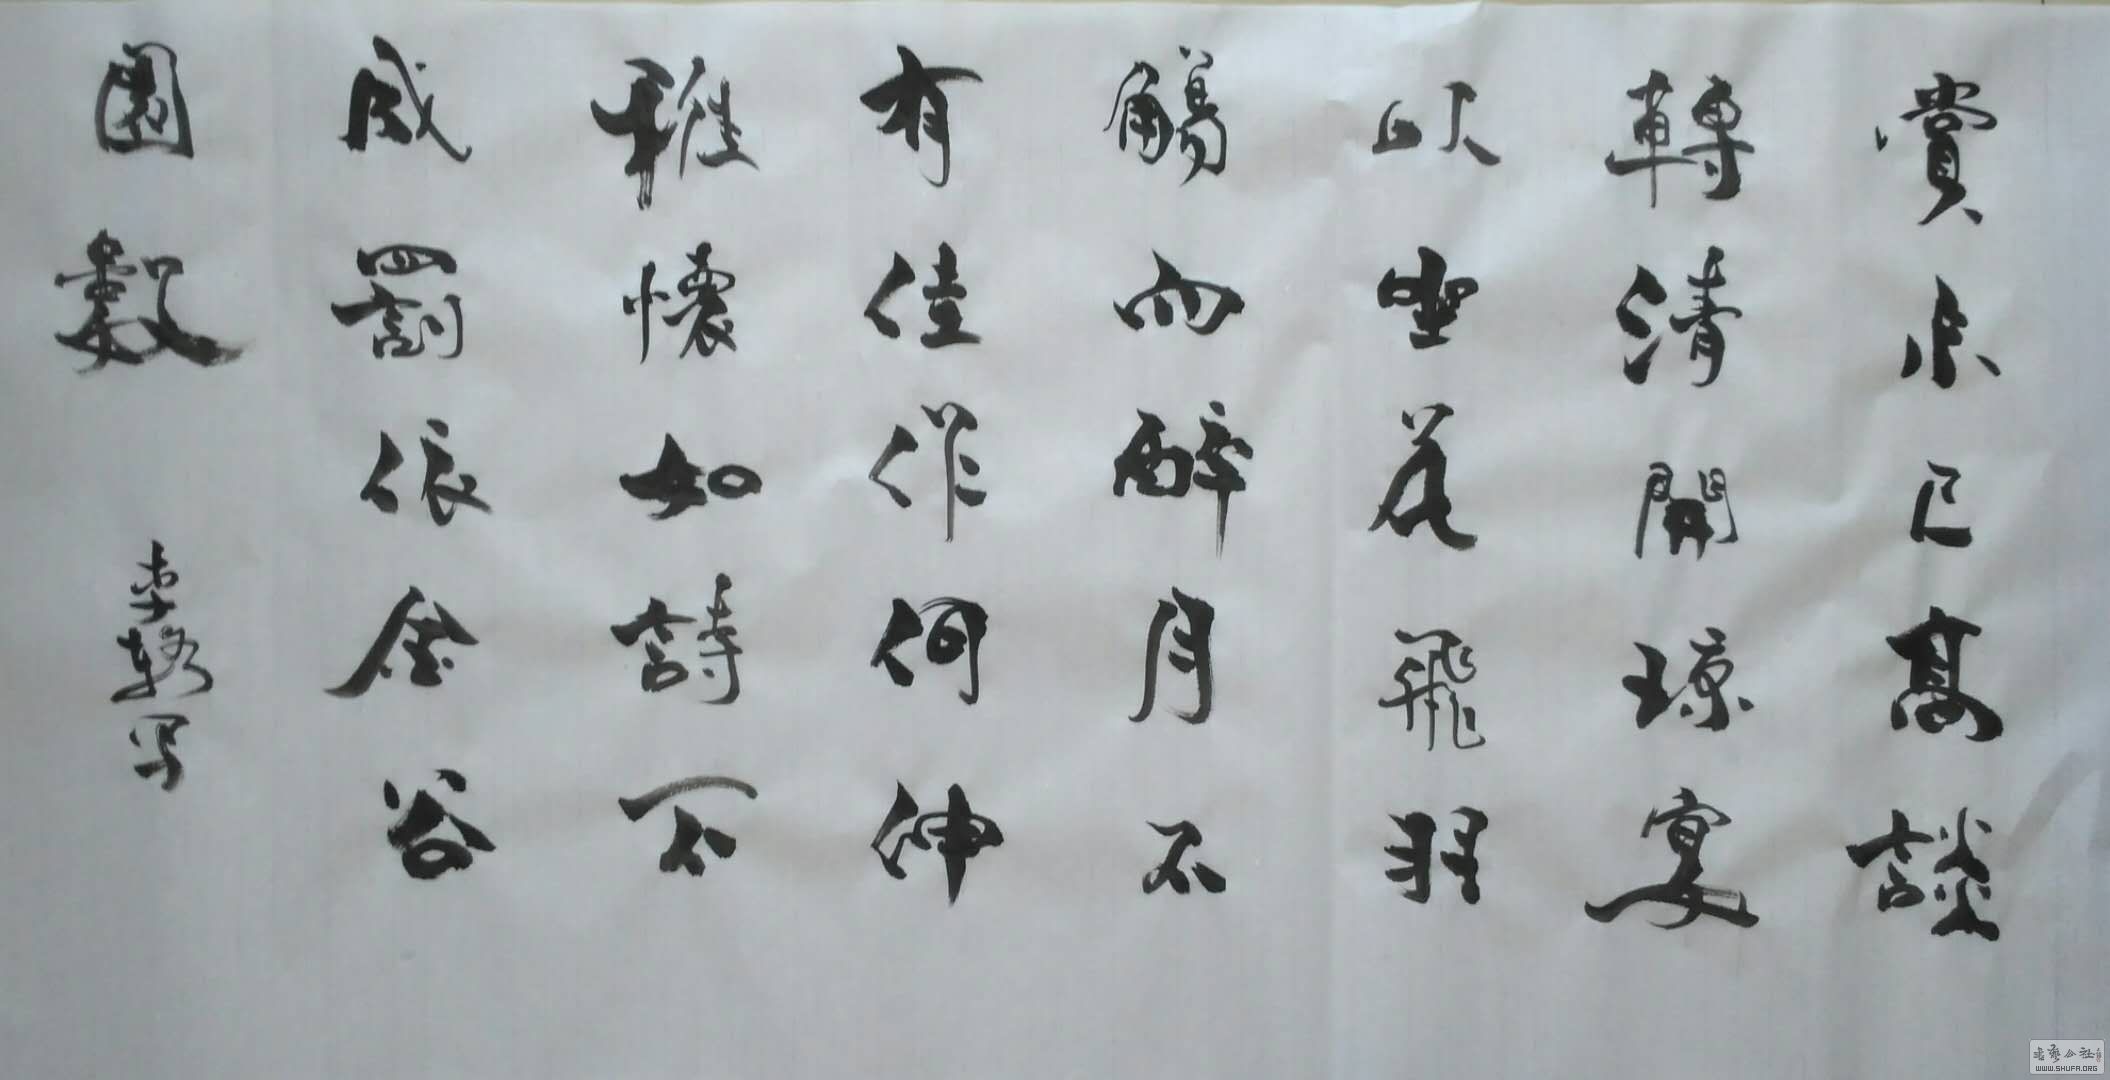 賞未已高談
轉清開瓊宴
以坐花飛羽
觴而醉月不
有佳作何伸
雅懷如詩不
成罰依金谷
園數
写
WWW.SHUFA.ORG